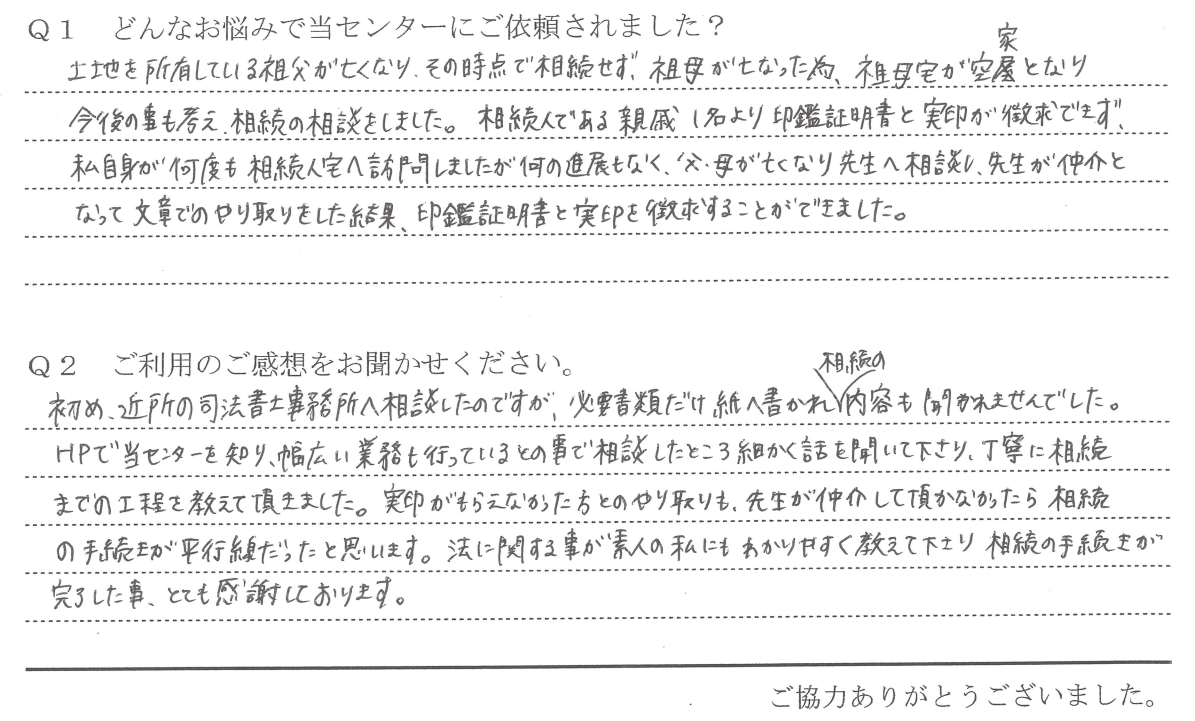 Q1 どんなお悩みで当センターにご依頼されました？
家
土地を所有している祖父が亡くなり、その時点で相続せず、祖母が亡なった為、祖母宅が空屋となり
今後の事も考え、相続の相談をしました。相続人である親戚1名より印鑑証明書と実印が徴求できず、
私自身が何度も相続人宅へ訪問しましたが何の進展もなく、父・母が亡くなり先生へ相談し、先生が仲介と
なって文章でのやり取りをした結果、印鑑証明書と実印を徴求することができました。
Q2 ご利用のご感想をお聞かせください。
相続の
初め、近所の司法書士事務所へ相談したのですが、必要書類だけ紙へ書かれ内容も聞かれませんでした。
HPで当センターを知り、幅広い業務も行っているとの事で相談したところ細かく話を聞いて下さり、丁寧に相続
までの工程を教えて頂きました。実印がもらえなかった方とのやり取りも、先生が仲介して頂かなかったら相続
の手続きが平行線だったと思います。法に関する事が素人の私にもわかりやすく教えて下さり相続の手続きが
完了した事、とても感謝しております。
ご協力ありがとうございました。